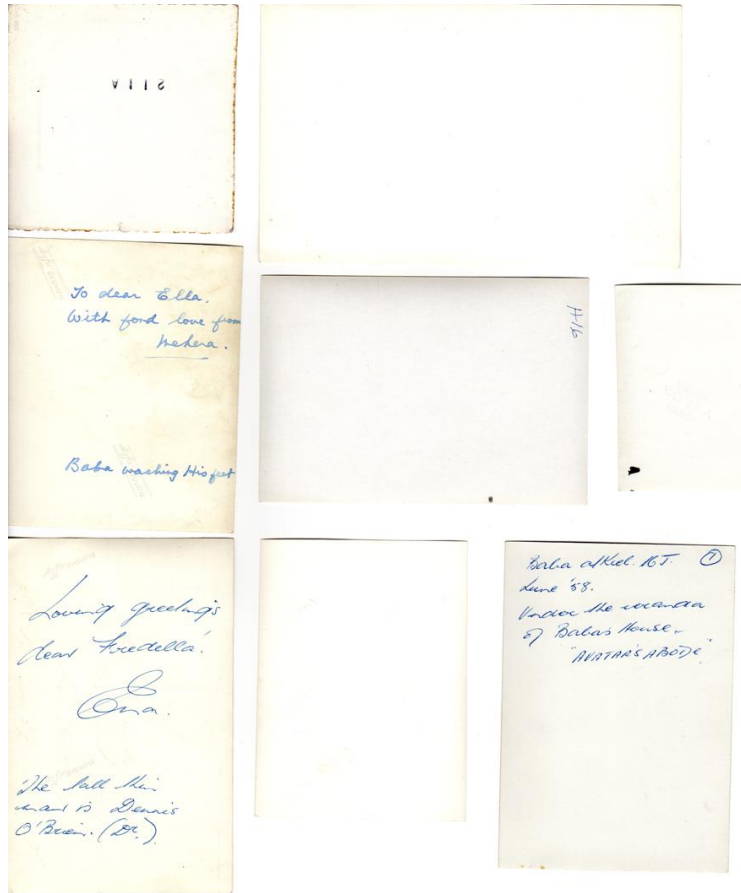 211A
To dear Ella.
With fond love from
Mehera.
Baba washing His feet
H-16
Loving greetings
dear Fredella!
Ena.
The tall thin
man is Dennis
O'Brien. (Dr.)
Baba at Kiel. Mt. 1
June '58.
Under the veranda
of Baba's House.
"AVATAR'S ABODE"